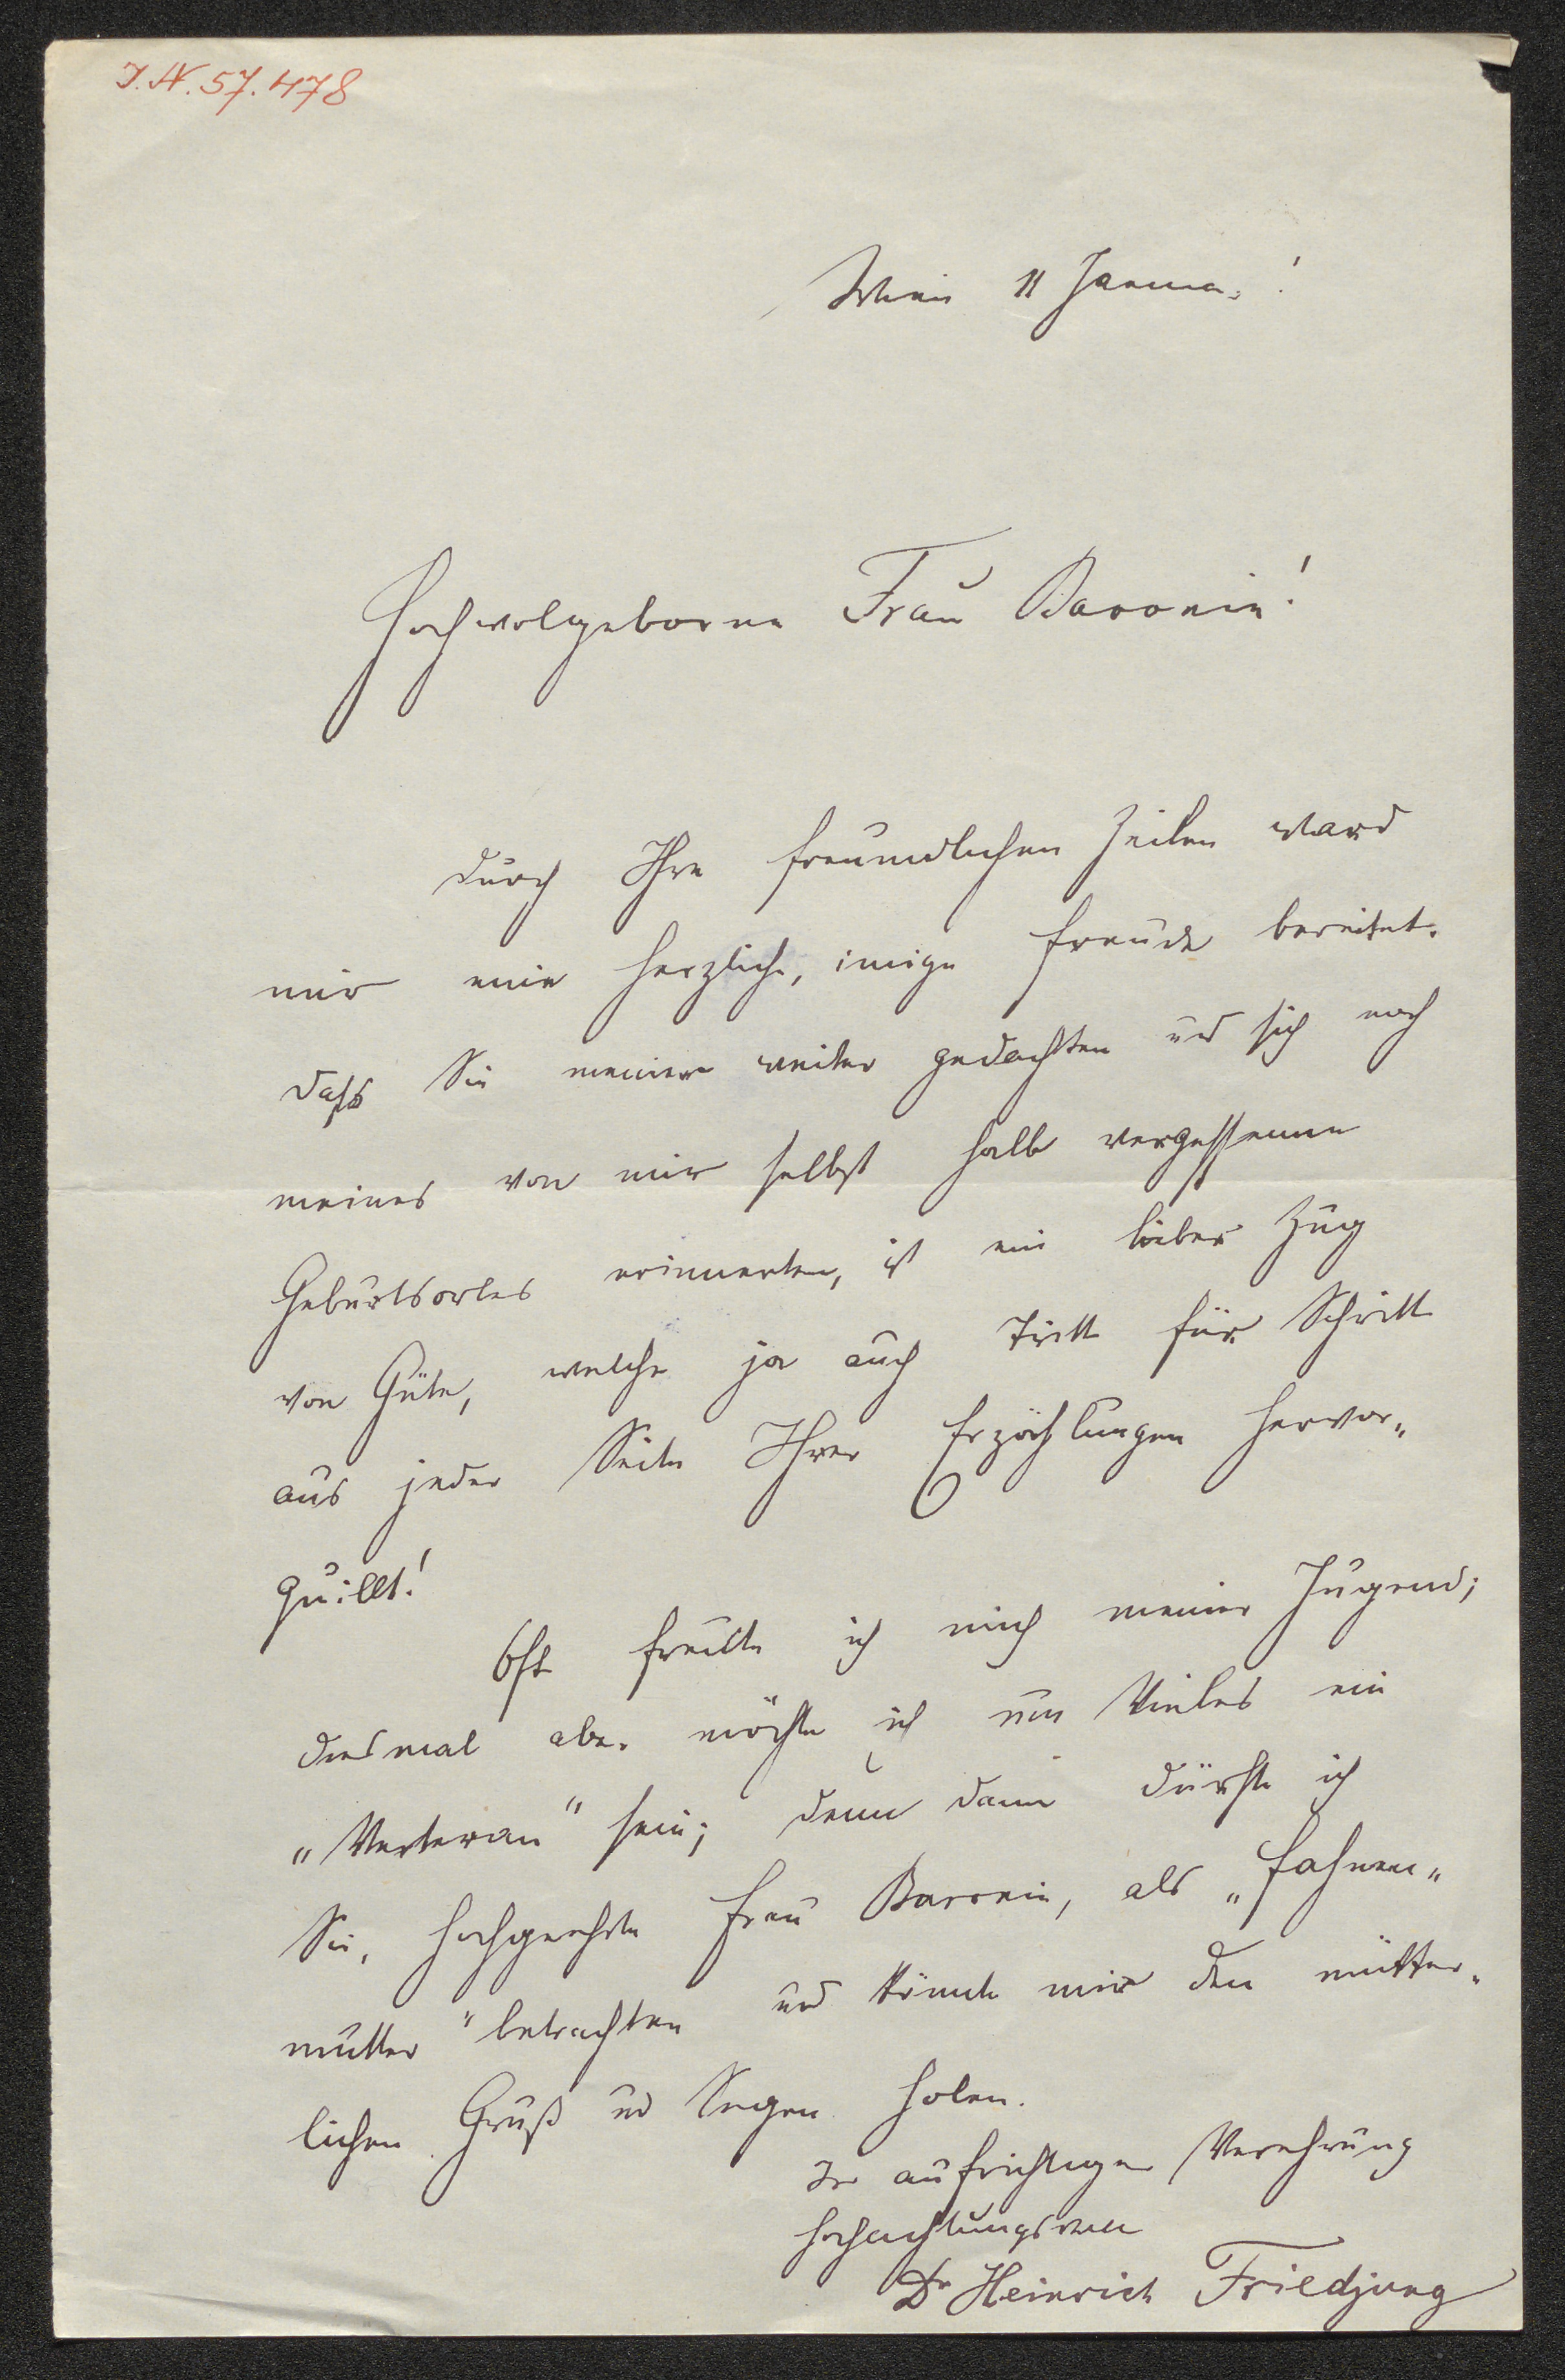 I.N. 57.478
Wien 11 Januar!
Hochwolgeborne Frau Baronin!
durch Ihre freundlichen Zeilen ward
mir eine herzliche, innige Freude bereitet.
dass Sie meiner weiter gedachten und sich noch
meines von mir selbst halb vergessenen
Geburtsortes erinnerten, ist ein lieber Zug
von Güte, welche ja auch Tritt für Schritt
aus jeder Seite Ihrer Erzählungen hervor-
quillt!
Oft freute ich mich meiner Jugend;
diesmal aber möchte ich um Vieles ein
„Veteran“ sein; denn dann dürfte ich
Sie, hochgeehrte Frau Baronin, als „Fahnen-
mutter“ betrachten und könnte mir den mütter-
lichen Gruß und Segen holen.
In aufrichtiger Verehrung
hochachtungsvoll
Dr Heinrich Friedjung